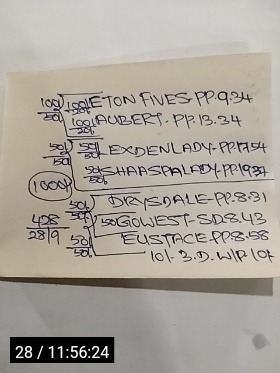 100/50 100/20 ETON FIVES-PP.9.34
100/20 AUBERT-PP.13.34
50/50 50/50 LEXDENLADY-PP.17.54
50/50 SHARSPALADY-PP.19.34
1000/
DRYSDALE-PP.8.31
50/50 50 GOWEST-SD8.43
428 EUSTACE.PP.8.58
28/9 50/50 10/- 3.D. W/P 10/-
28 / 11:56:24